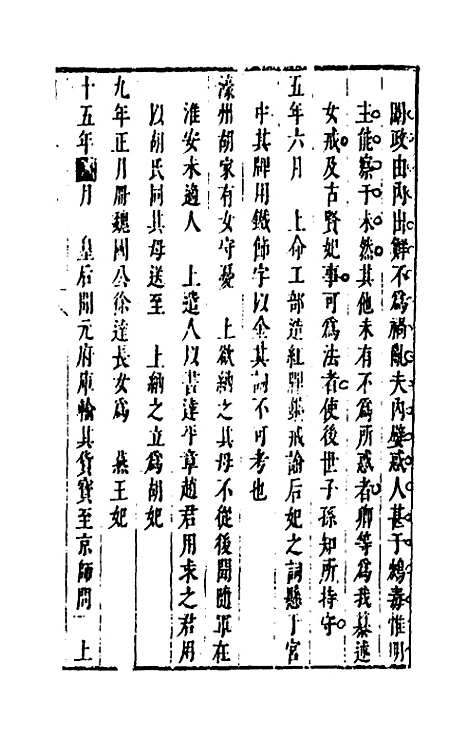 閫政由内出鮮不爲禍亂夫内嬖惑人甚于鴆毒惟明
主能察于未然其他未有不爲所惑者卿等爲我纂述
女戒及古賢妃事可爲法者使後世子孫知所持守
五年六月　上命工部造紅牌鐫戒諭后妃之詞懸于宮
中其牌用鐵飾字以金其詞不可考也
濠州胡家有女守憂　上欲納之其母不從後聞隨軍在
淮安未適人　上遣人以書達平章趙君用求之君用
以胡氏同其母送至　上納之立爲胡妃
九年正月冊魏國公徐達長女爲　燕王妃
十五年 月　皇后聞元府庫輸其貨寶至京師問　上